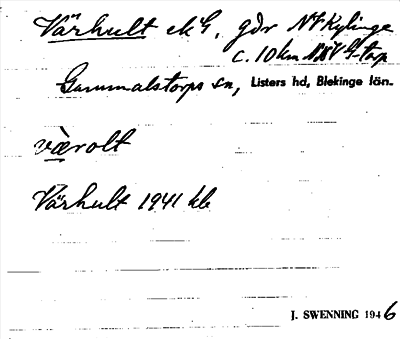 Värhult ekG, gdr NV Kylinge
c. 10 km NNV G-torp
Gammalstorps sn, Listers hd, Blekinge län.
værolt
Värhult 1941 kb
J. SWENNING 1946